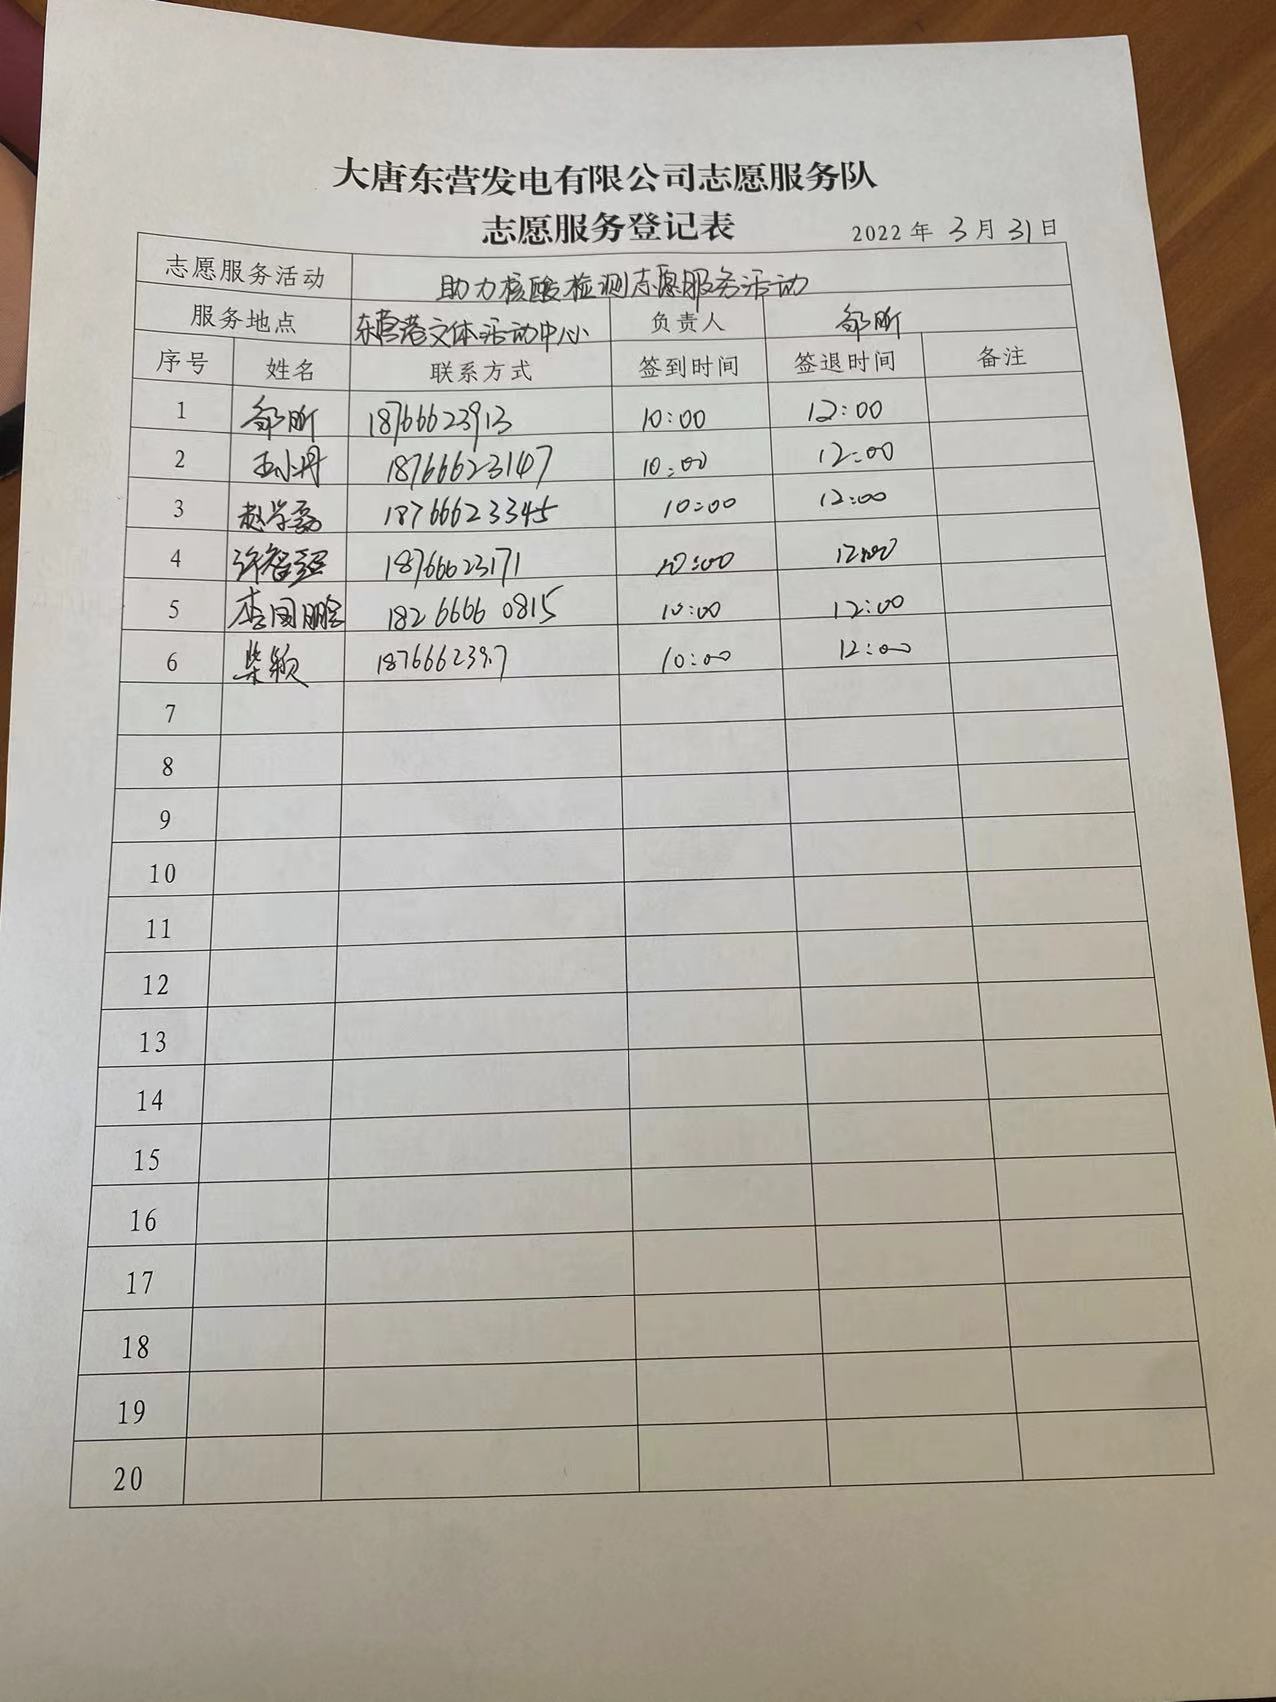 大唐东营发电有限公司志愿服务队
志愿服务登记表 2022 年 3 月 31 日
志愿服务活动 助力核酸检测志愿服务活动
服务地点 东营港文体活动中心 负责人 邹昕
序号 姓名 联系方式 签到时间 签退时间 备注
1 邹昕 18766623913 10:00 12:00
2 王小丹 18766623147 10:00 12:00
3 赵学磊 18766623345 10:00 12:00
4 许智超 18766623171 10:00 12:00
5 李国鹏 182 6666 0815 10:00 12:00
6 柴颖 10:00 12:00
7
8
9
10
11
12
13
14
15
16
17
18
19
20